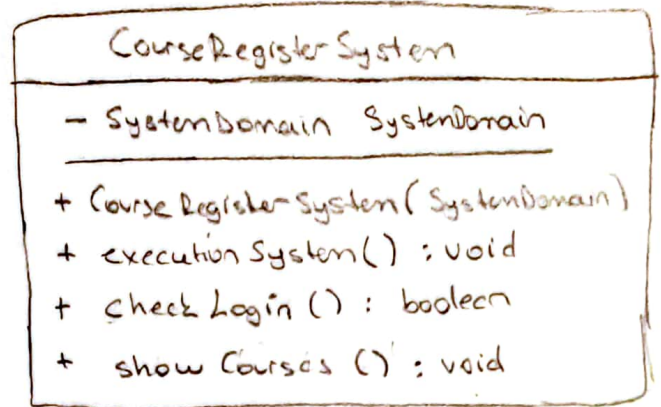 CourseRegisterSystem
- SystemDomain SystemDomain
+ CourseRegisterSystem(SystemDomain)
+ executionSystem() : void
+ checkLogin() : boolean
+ showCourses() : void